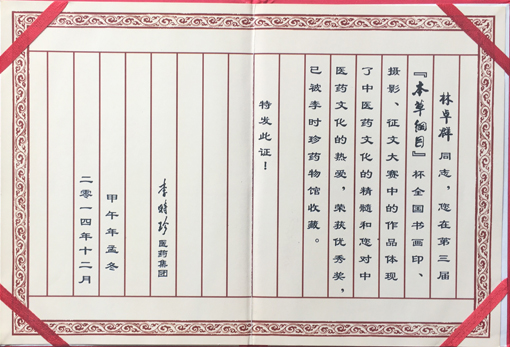 林卓群同志，您在第三届
『本草纲目』杯全国书画印、
摄影、征文大赛中的作品体现
了中医药文化的精髓和您对中
医药文化的热爱，荣获优秀奖，
已被李时珍药物馆收藏。
特发此证！
李时珍医药集团
甲午年孟冬
二零一四年十二月